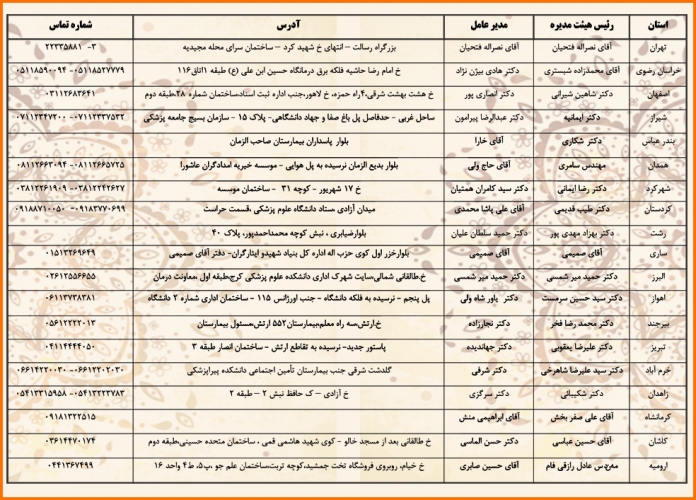 استان رئیس هیئت مدیره مدیر عامل آدرس شماره تماس
تهران آقای نصراله فتحیان آقای نصراله فتحیان بزرگراه رسالت – انتهای خ شهید کرد – ساختمان سرای محله مجیدیه ۳- ۲۲۳۳۵۸۸۱
خراسان رضوی آقای محمدزاده شبستری دکتر هادی بیژن نژاد خ امام رضا حاشیه فلکه برق درمانگاه حسین ابن علی (ع) طبقه ۱اتاق۱۱۶ ۰۵۱۱۸۵۲۷۷۷۹- ۰۵۱۱۸۵۹۰۰۹۴
اصفهان دکتر شاهین شیرانی دکتر انصاری پور خ هشت بهشت شرقی،۴راه حمزه، خ لاهور،جنب اداره ثبت اسناد،ساختمان شماره ۲۸،طبقه دوم ۰۳۱۱۲۶۸۳۶۴۱
شیراز دکتر ایمانیه دکتر عبدالرضا پیرامون ساحل غربی – حدفاصل پل باغ صفا و جهاد دانشگاهی- پلاک ۱۵ – سازمان بسیج جامعه پزشکی ۰۷۱۱۲۳۳۷۵۳۲- ۰۷۱۱۲۳۴۷۲۰۰
بندر عباس دکتر شکاری آقای خارا بلوار پاسداران بیمارستان صاحب الزمان
همدان مهندس سامری آقای حاج ولی بلوار بدیع الزمان نرسیده به پل هوایی – موسسه خیریه امدادگران عاشورا ۰۸۱۱۲۶۶۵۷۲۵- ۰۸۱۱۲۶۶۳۰۹۴
شهرکرد دکتر رضا ایمانی دکتر سید کامران همتیان خ ۱۷ شهریور – کوچه ۳۱ – ساختمان موسسه ۰۳۸۱۲۲۴۲۶۲۷- ۰۳۸۱۲۲۶۱۹۰۹
کردستان دکتر طیب قدیمی آقای علی پاشا محمدی میدان آزادی ،ستاد دانشگاه علوم پزشکی ،قسمت حراست ۰۹۱۸۳۷۷۰۶۹۹- ۰۹۱۸۸۷۱۰۰۵۰
رشت دکتر بهزاد مهدی پور دکتر حمید سلطان علیان بلوارضیابری ، نبش کوچه محمداحمدپور، پلاک ۴۰
ساری آقای صمیمی آقای صمیمی بلوارخزر اول کوی حزب اله اداره کل بنیاد شهیدو ایثارگران- دفتر آقای صمیمی ۰۱۵۱۳۲۶۹۶۴۹
البرز دکتر حمید میر شمسی دکتر حمید میر شمسی خ.طالقانی شمالی،سایت شهرک اداری دانشکده علوم پزشکی کرج،طبقه اول ،معاونت درمان ۰۲۶۱۲۵۵۶۶۵۵
اهواز دکتر سید حسین سرمست دکتر یاور شاه ولی پل پنجم – نرسیده به فلکه دانشگاه – جنب اورژانس ۱۱۵ – ساختمان اداری شماره ۲ دانشگاه ۰۶۱۱۳۷۳۸۳۸۱
بیرجند دکتر محمد رضا فخر دکتر نجارزاده خ.ارتش،سه راه معلم،بیمارستان۵۵۲ ارتش،مسئول بیمارستان ۰۵۶۱۲۲۲۲۰۱۳
تبریز دکتر علیرضا یعقوبی دکتر جهاندیده پاستور جدید- نرسیده به تقاطع ارتش – ساختمان انصار طبقه ۳ ۰۴۱۱۴۴۴۴۰۵۰
خرم آباد دکتر سید علیرضا شاهرخی دکتر شرفی گلدشت شرقی جنب بیمارستان تأمین اجتماعی دانشکده پیراپزشکی ۰۶۶۱۲۲۰۲۰۳۰- ۰۶۶۱۴۲۲۰۰۳۰
زاهدان دکتر شکیبائی دکتر سرگزی خ آزادی – ک حافظ نبش ۲ – طبقه ۲ ۰۵۴۱۳۲۲۳۷۸۳- ۰۵۴۱۳۳۱۵۹۵۸
کرمانشاه آقای علی صفر بخش آقای ابراهیمی منش ۰۹۱۸۱۳۲۲۵۱۵
کاشان آقای حسین عباسی دکتر حسن الماسی خ طالقانی بعد از مسجد خالو – کوی شهید هاشمی قمی ، ساختمان متحده حسینی،طبقه دوم ۰۳۶۱۴۴۷۰۱۷۴
ارومیه مهندس عادل رازقی فام آقای حسین صابری خ خیام، روبروی فروشگاه تخت جمشید،کوچه تربت،ساختمان علم جو ،پ۵، ط۴ واحد ۱۶ ۰۴۴۱۳۶۷۴۹۹